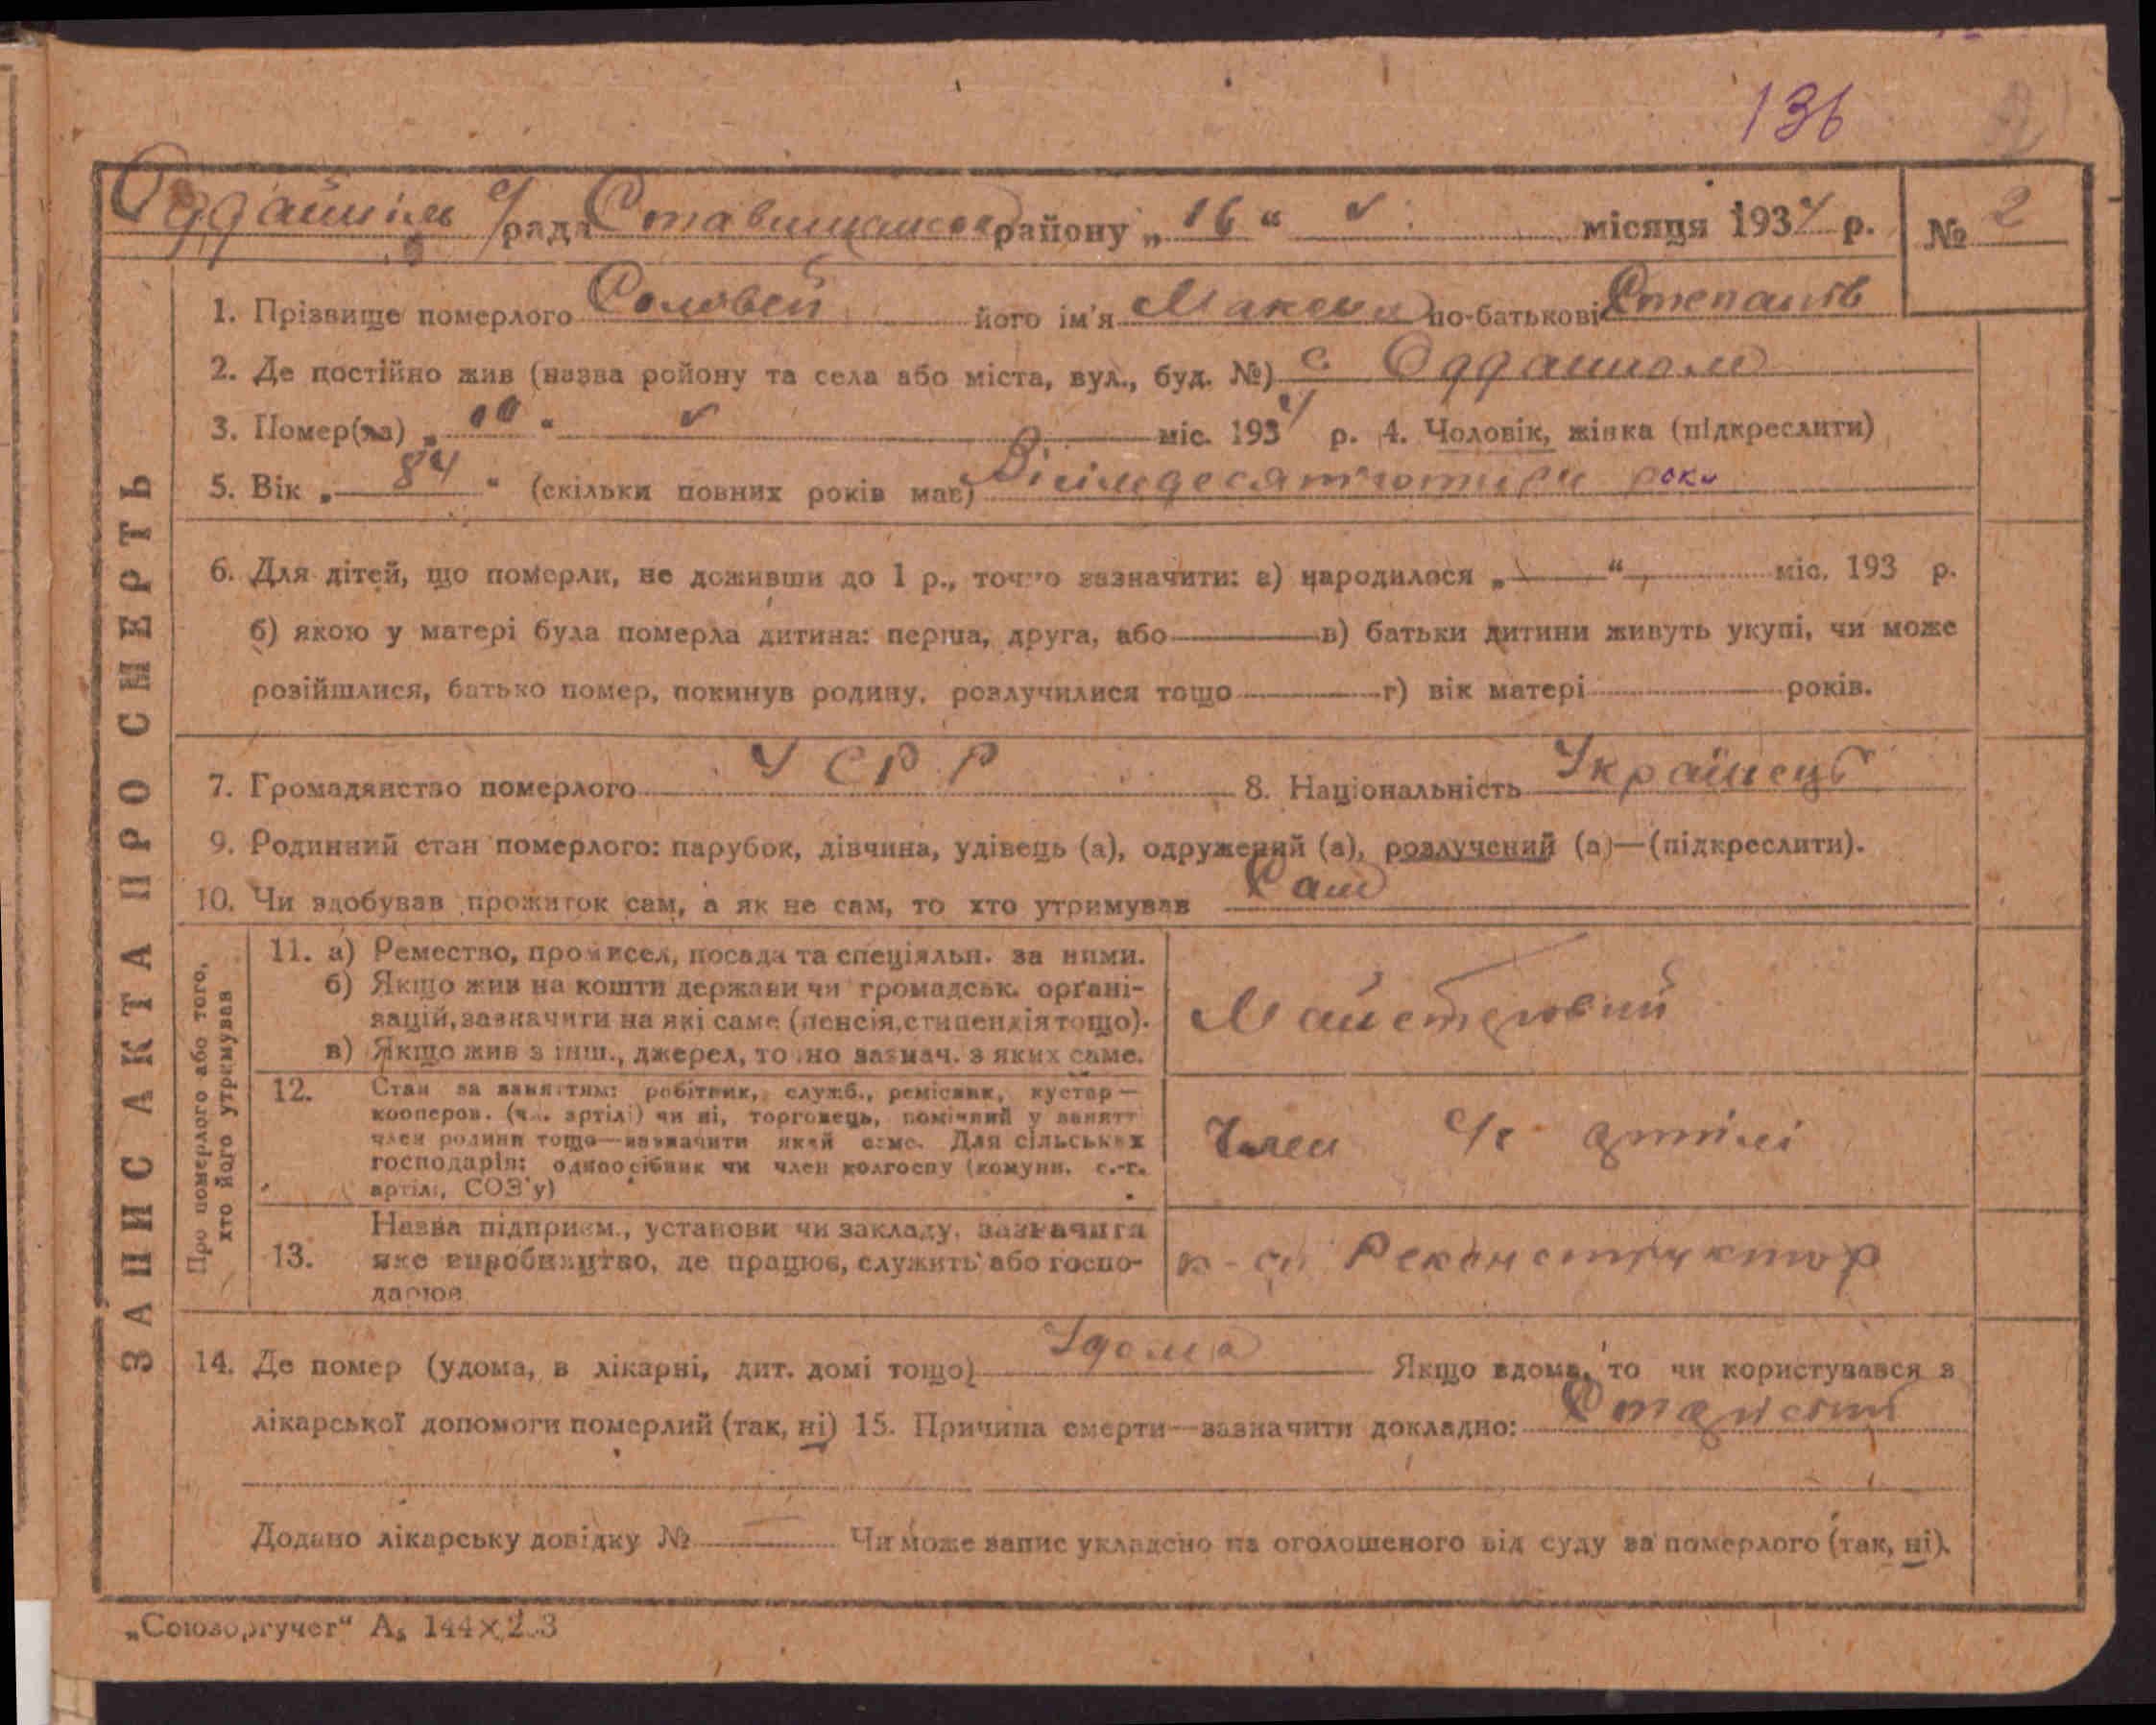 136
с/рада Ставищанського району „ 16 “ V місяця 1934 р. № 2
ЗАПИС АКТА ПРО СМЕРТЬ
1. Прізвище померлого Соловей його ім'я Максим по-батькові Степанів
2. Де постійно жив (назва ройону та села або міста, вул., буд. №) с.
3. Помер(ла) „ “ V міс. 1934 р. 4. Чоловік, жінка (підкреслити)
5. Вік „ 84 “ (скільки повних років має) Вісімдесят чотири роки
6. Для дітей, що померли, не доживши до 1 р., точно зазначити: а) народилося „ “ міс. 193 р.
б) якою у матері була померла дитина: перша, друга, або в) батьки дитини живуть укупі, чи може
розійшлися, батько помер, покинув родину, розлучилися тощо г) вік матері років.
7. Громадянство померлого УСРР 8. Національність Українець
9. Родинний стан померлого: парубок, дівчина, удівець (а), одружений (а), розлучений (а)—(підкреслити).
10. Чи здобував прожиток сам, а як не сам, то хто утримував Сам
Про померлого або того,
хто його утримував
11. а) Ремество, промисел, посада та спеціяльн. за ними.
б) Якщо жив на кошти держави чи громадськ. органі-
зацій, зазначити на які саме (пенсія, стипендія тощо).
в) Якщо жив з інш., джерел, точно зазнач. з яких саме.
Майстровий
12. Стан за заняттям: робітник, служб., ремісник, кустар —
кооперов. (чл. артілі) чи ні, торговець, помічний у занятт
член родини тощо—зазначити який саме. Для сільських
господарів: одноосібник чи член колгоспу (комуни, с.-г.
артілі, СОЗ'у)
Член с/г артілі
13. Назва підприєм., установи чи закладу, зазначити
яке виробництво, де працює, служить або госпо-
дарює
к-сп Реконструктор
14. Де помер (удома, в лікарні, дит. домі тощо) Удома Якщо вдома, то чи користувався з
лікарської допомоги померлий (так, ні) 15. Причина смерти—зазначити докладно:
Додано лікарську довідку № Чи може запис укладено на оголошеного від суду за померлого (так, ні).
„Союзоргучет“ А₅ 144×2.3